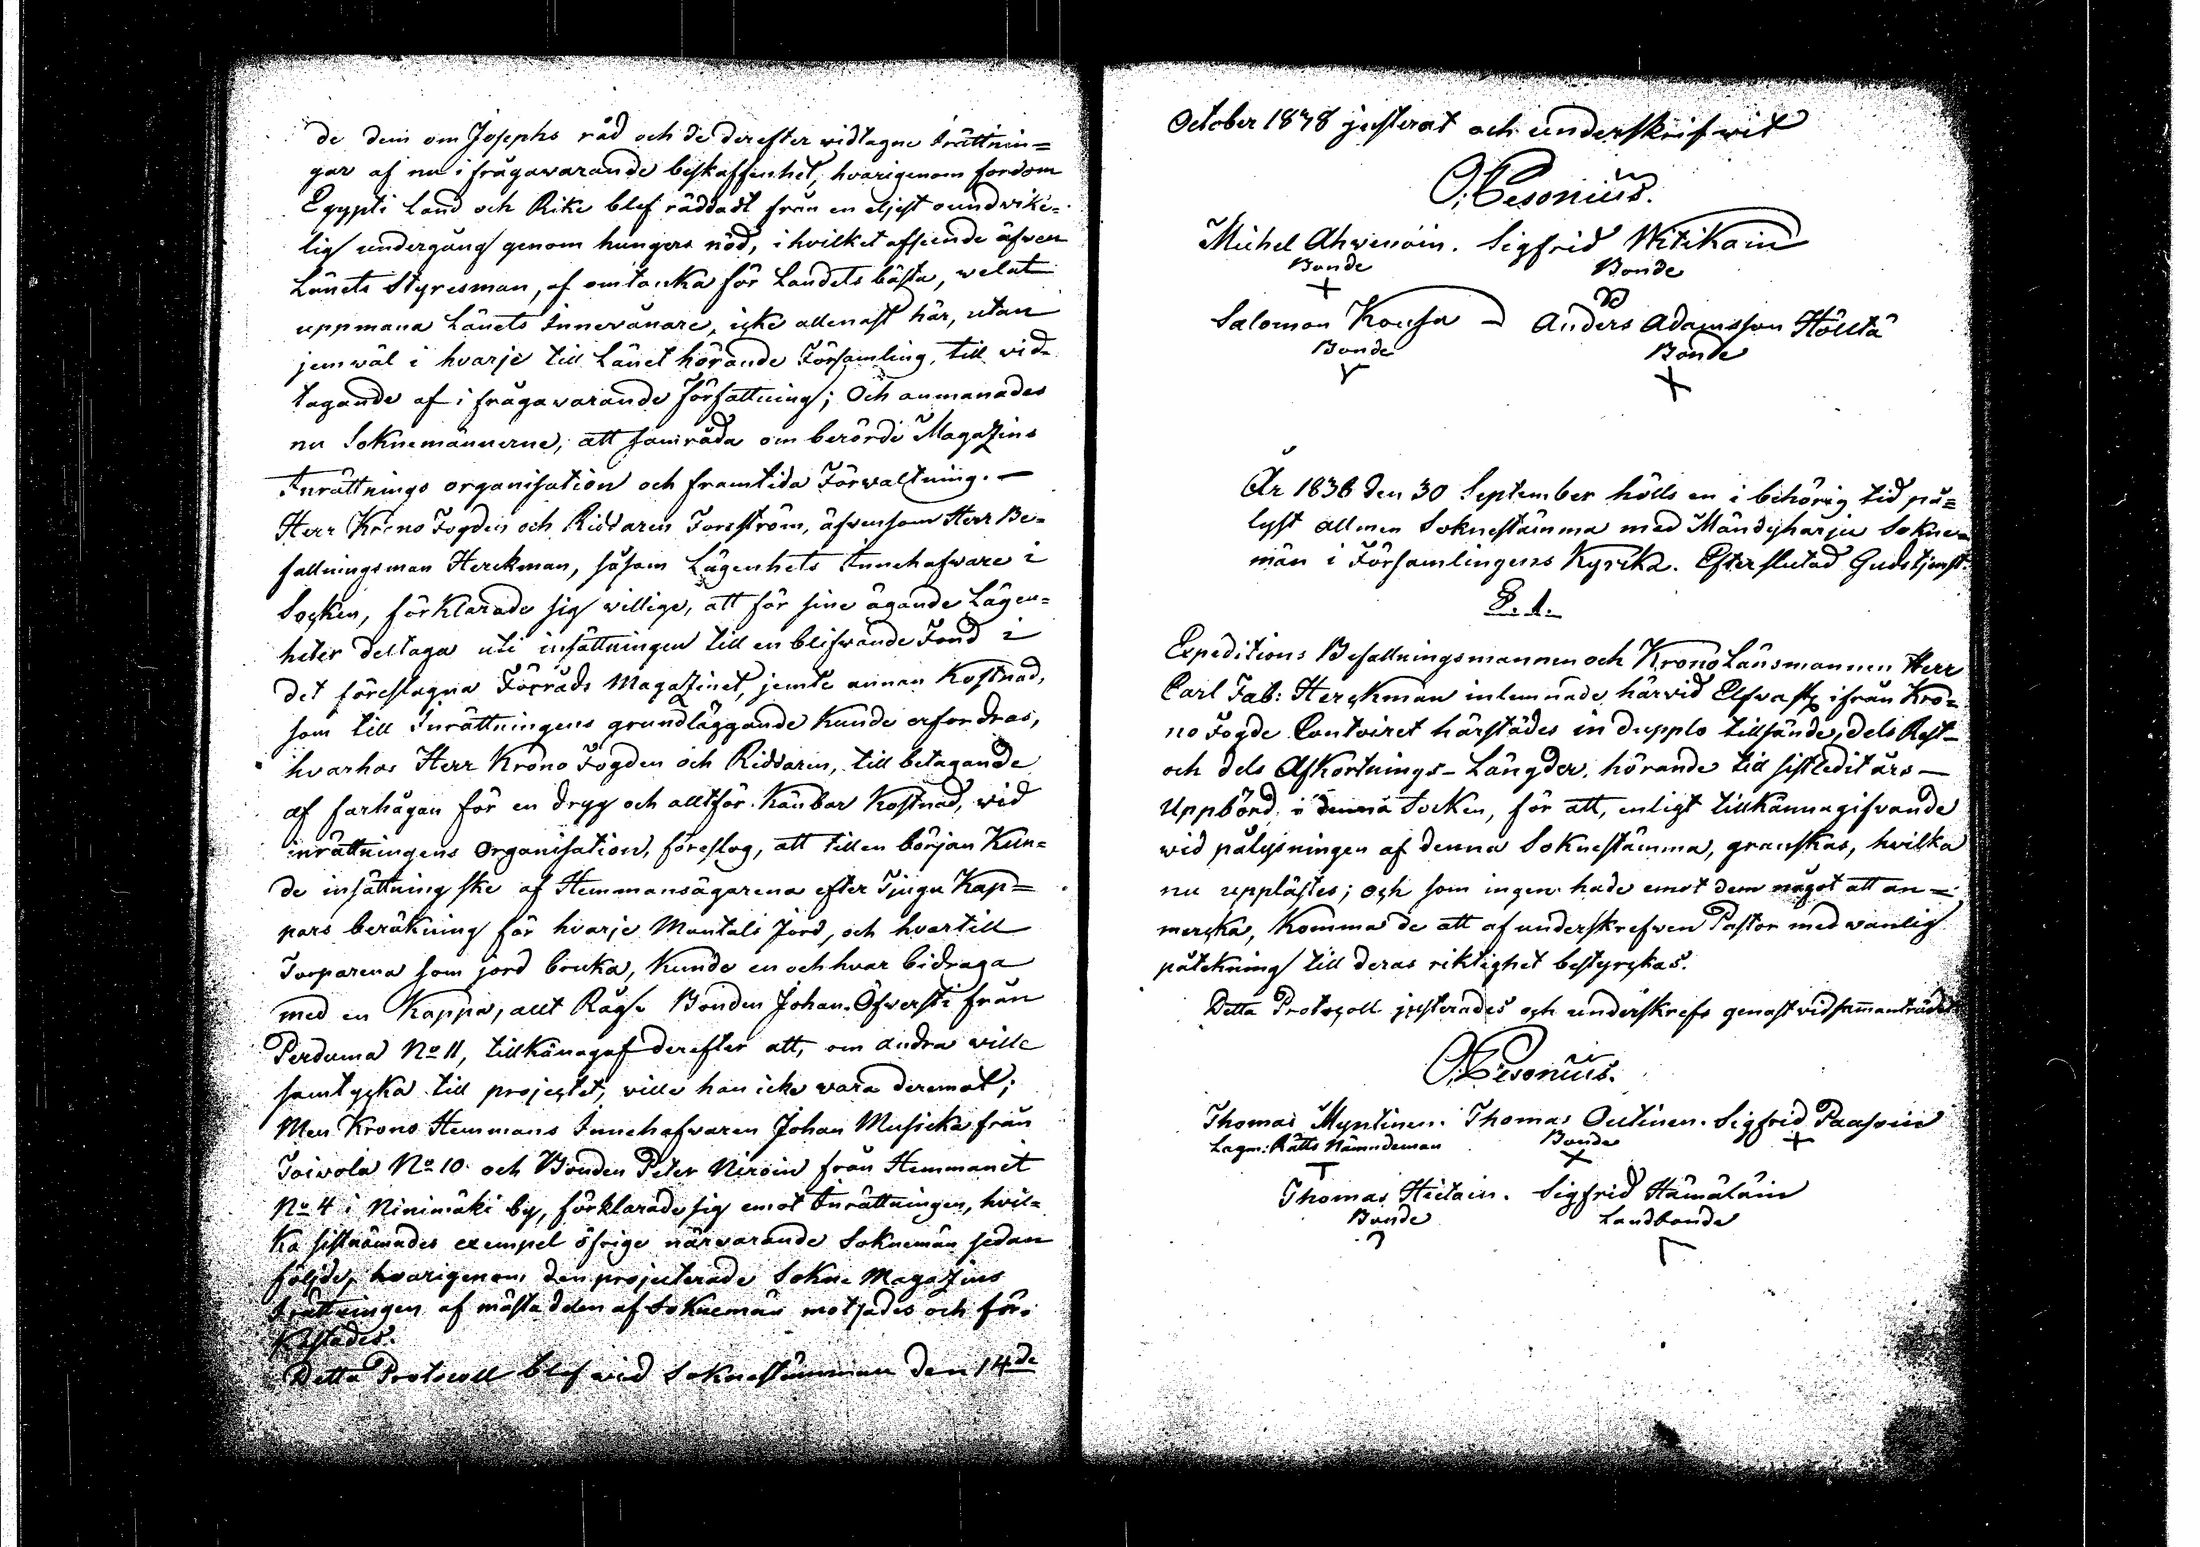 de dem om Josephs råd och de derefter vidtagne Irättnin=
gar af nu i frågawarande beskaffenhet, hvarigenom fordom
Egypti Land och Rike blef räddadt från en eljest oundwike=
lig undergång genom hungers nöd, i hvilket afseende äfwen
Länets Styresman, af omtanka för Landets bästa, welat
uppmana Länets Innevånare, icke allenast här, utan
jemwäl i hvarje till Länet hörande Församling, till wid=
tagande af i frågawarande författning; Och anmanades
nu Soknemännerne, att samråda om berörde Magazins
Inrättnings organisation och framtida Förwaltning. —
Herr Krono Fogden och Riddaren Forsström, äfvensom Herr Be=
fallningsman Herckman, såsom Lägenhets Innehafware i
Socken, förklarade sig willige, att för sine ägande Lägen=
heter deltaga uti insättningen till en blifwande Fond i
det föreslagna Förråds Magazinet, jemte annan Kostnad,
som till Inrättningens grundläggande kunde erfordras,
hvarhos Herr Krono Fogden och Riddaren, till betagande
af farhågan för en dryg och alltför känbar Kostnad, wid
inrättningens Organisation, föreslog, att till en början kun=
de insättning ske af Hemmansägarena efter Tjugu Kap=
pars beräkning för hvarje Mantals Jord, och hvartill
Torparena som jord bruka, kunde en och hvar bidraga
med en Kappa, allt Råg. Bonden Johan Öfwersti från
Perduma No 11, tillkänagaf derefter att, om andra wille
samtycka till projectet, wille han icke wara deremot;
Men Krono Hemmans Innehafwaren Johan Musicka från
Toiwola No 10 och Bonden Peter Niroin från Hemmanet
No 4 i Ninimäki by, förklarade sig emot Inrättningen, hvil=
ka sistnämndes exempel öfrige närvarande Soknemän sedan
följde, hvarigenom den projecterade Sokne Magazins
Irättningen af mästa delen af Soknemän motsades och för=
kastades.
Detta Protocoll blef wid Soknestämman den 14de
October 1838 justerat och underskrifwit
O. Cesonius.
Michel Ahwenain. Sigfrid Witikain
Bonde Bonde
Salomon Kousa Anders Adamsson Höltä
Bonde Bonde
År 1838 den 30 September hölls en i behörig tid på=
lyst allmen Soknestämma med Mändyharju Sokne=
män i Församlingens Kyrcka. Efter slutad Gudstjenst.
S. d.
Expeditions Befallningsmannen och Krono Länsmannen Herr
Carl Fab: Herckman inlemnade härwid ifrån Kro=
no Fogde Contoiret härstädes in dupplo tillsände, dels Rest=
och dels Afkortnings-Längder, hörande till sistledit års —
Uppbörd i denna Socken, för att, enligt tillkännagifvande
wid pålysningen af denna Soknestämma, granskas, hvilka
nu upplästes; och som ingen hade emot dem något att an=
mercka, komma de att af underskrefwen Pastor med wanlig
påtekning till deras riktighet bestyrckas.
Detta Protocoll justerades och underskrefs genast vid sammanträdet
O. Cesonius.
Thomas Myntinen. Thomas Outinen. Sigfrid Paasoin
Lagm: Rätts Nämndeman Bonde
Thomas Hietain. Sigfrid Hämäläin
Bonde Landbonde